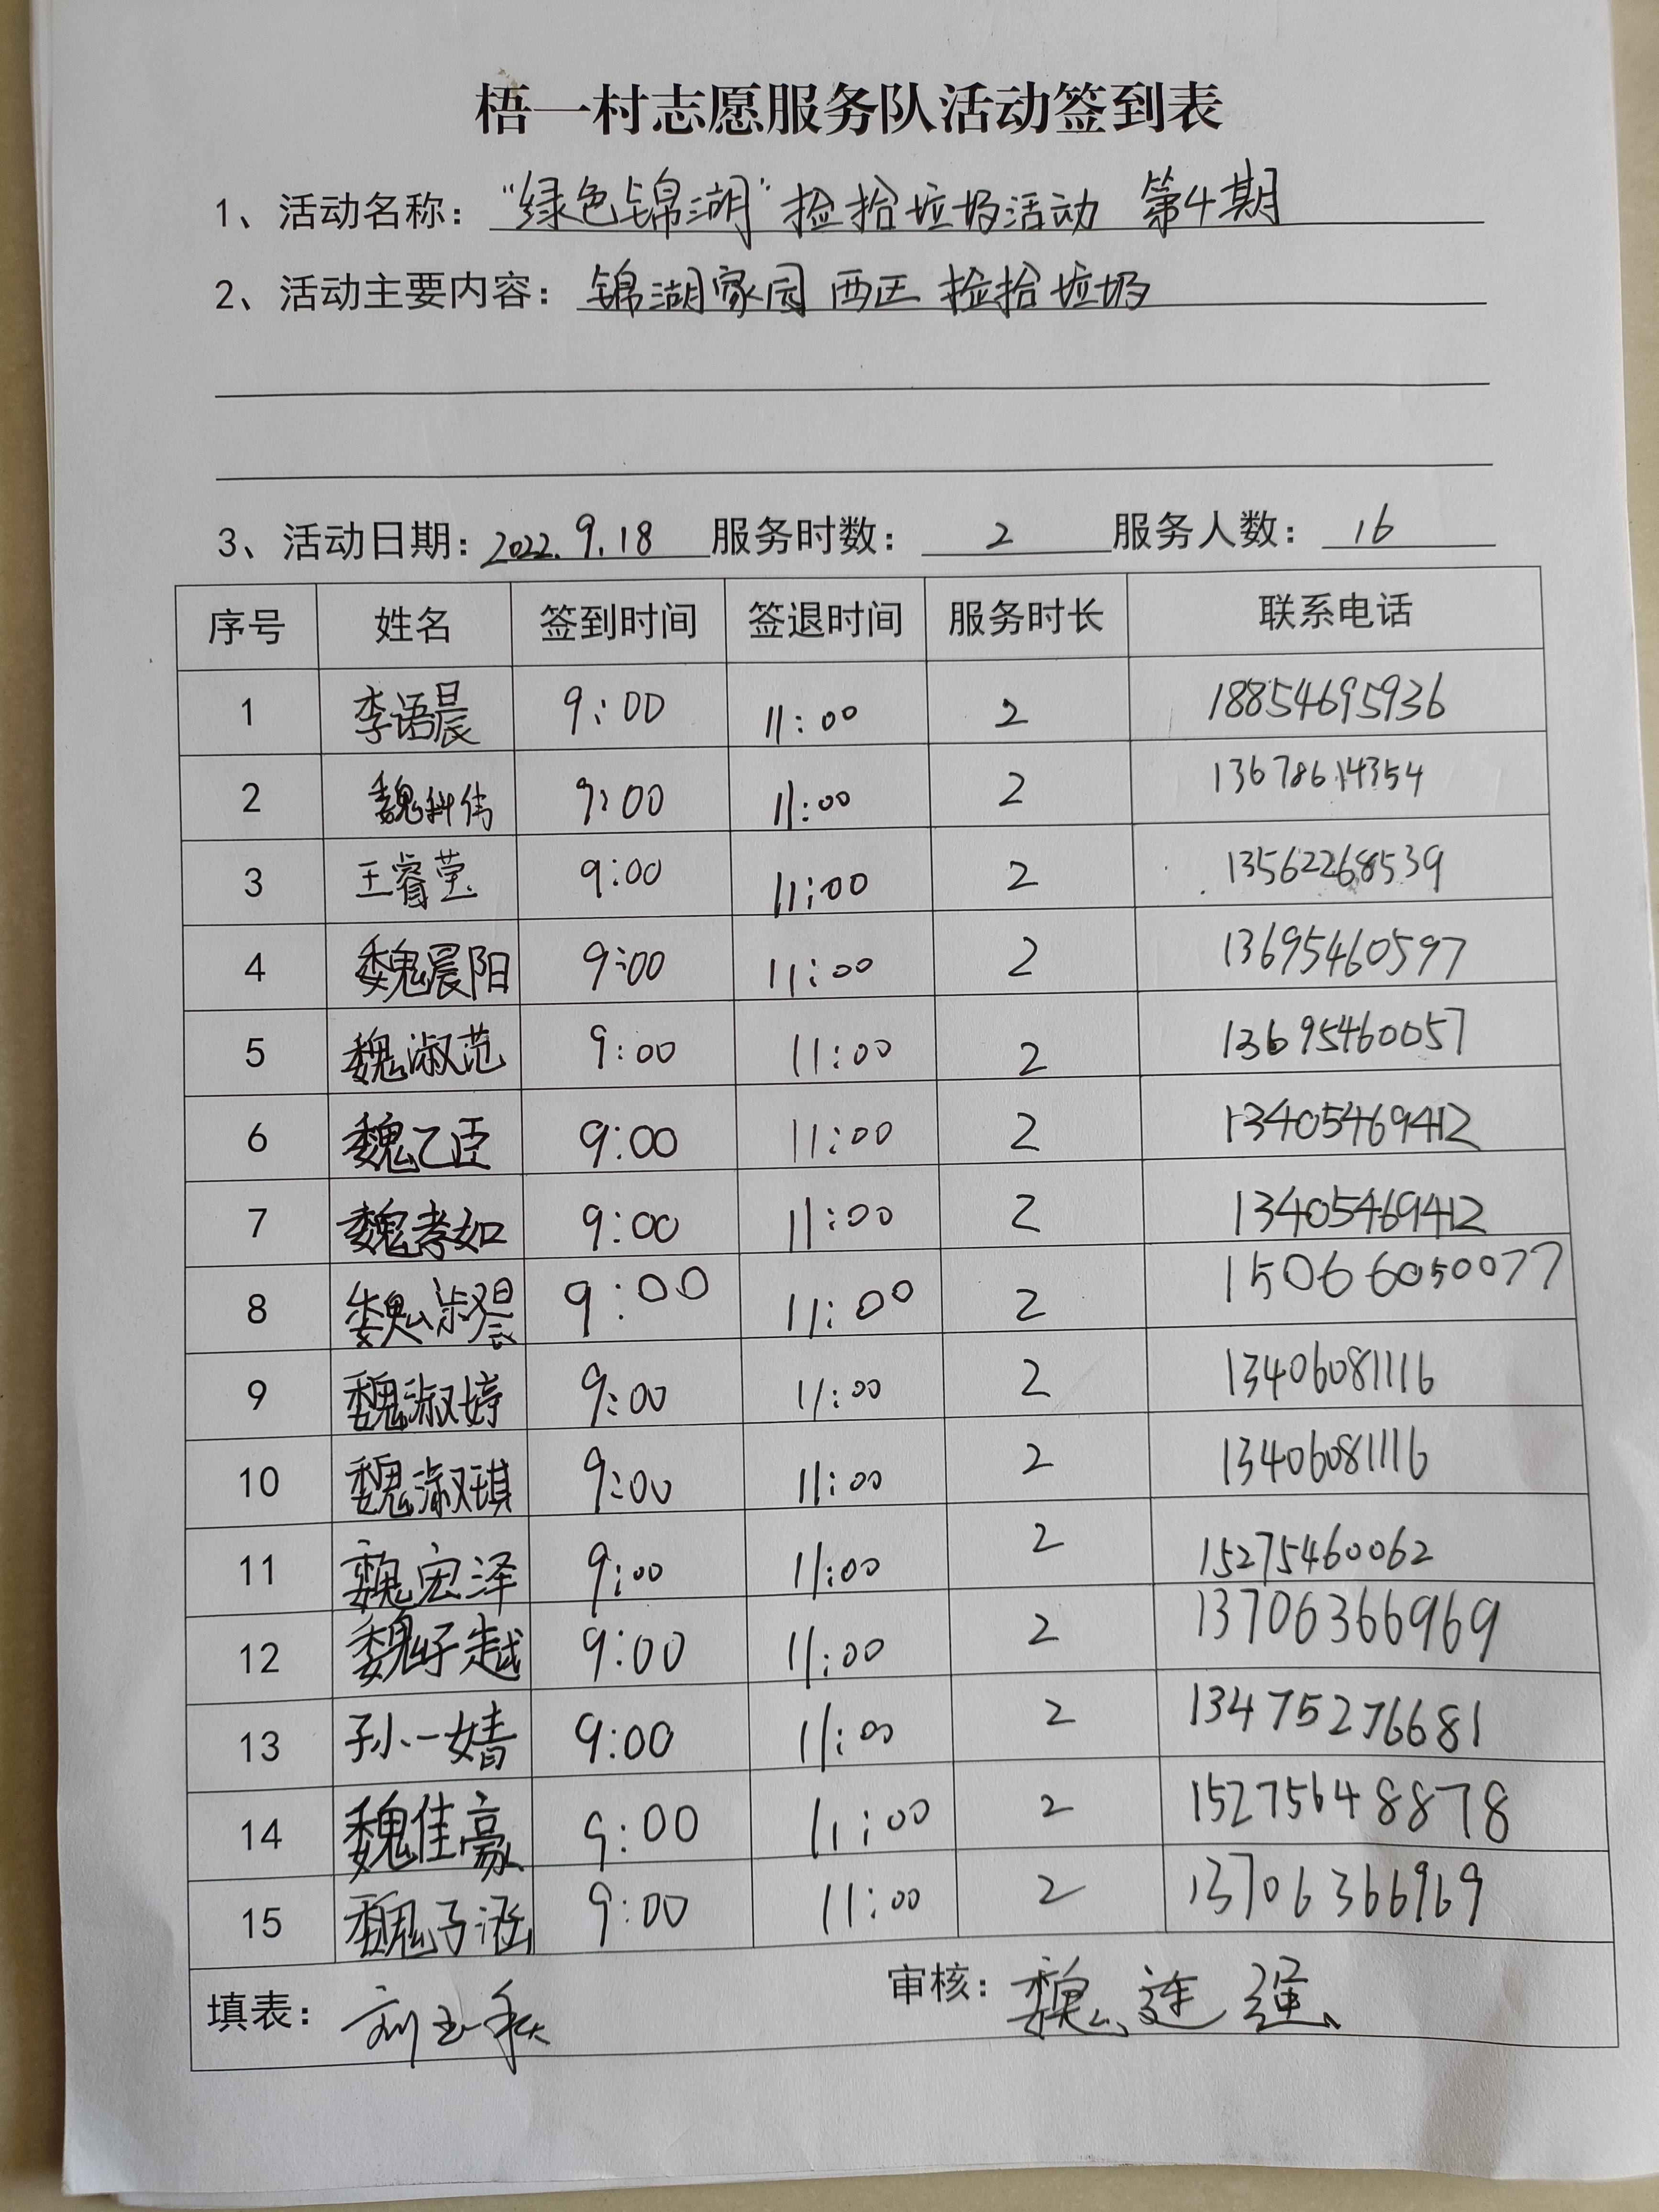 梧一村志愿服务队活动签到表
1、活动名称：“绿色锦湖”捡拾垃圾活动 第4期
2、活动主要内容：锦湖家园 西区 捡拾垃圾
3、活动日期：2022.9.18 服务时数：2 服务人数：16
序号 姓名 签到时间 签退时间 服务时长 联系电话
1 李语晨 9:00 11:00 2 18854695936
2 魏科伟 9:00 11:00 2 13678614354
3 王睿莹 9:00 11:00 2 13562268539
4 魏晨阳 9:00 11:00 2 13695460597
5 魏淑范 9:00 11:00 2 13695460057
6 魏乙臣 9:00 11:00 2 13405469412
7 魏孝如 9:00 11:00 2 13405469412
8 魏淑晨 9:00 11:00 2 15066050077
9 魏淑婷 9:00 11:00 2 13406081116
10 魏淑琪 9:00 11:00 2 13406081116
11 魏宏泽 9:00 11:00 2 15275460062
12 魏子越 9:00 11:00 2 13706366969
13 孙一婧 9:00 11:00 2 13475276681
14 魏佳豪 9:00 11:00 2 15275648878
15 魏子涵 9:00 11:00 2 13706366969
填表：刘玉秋 审核：魏连强